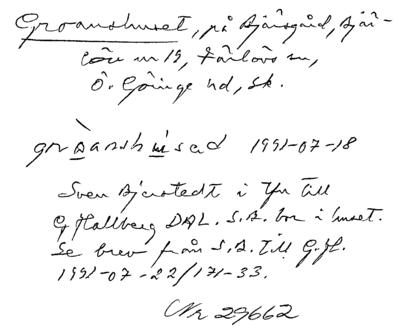 Groanshuset, på Bjärsgård, Bjär-
löv nr 19, Färlövs sn,
Ö. Göinge hd, Sk.
groanshusad 1991-07-18
Sven Bjerstedt i Yn till
G Hallberg DAL. S.B. bor i huset.
Se brev från S.B. till G.H.
1991-07-22/171-33.
Nr 29662